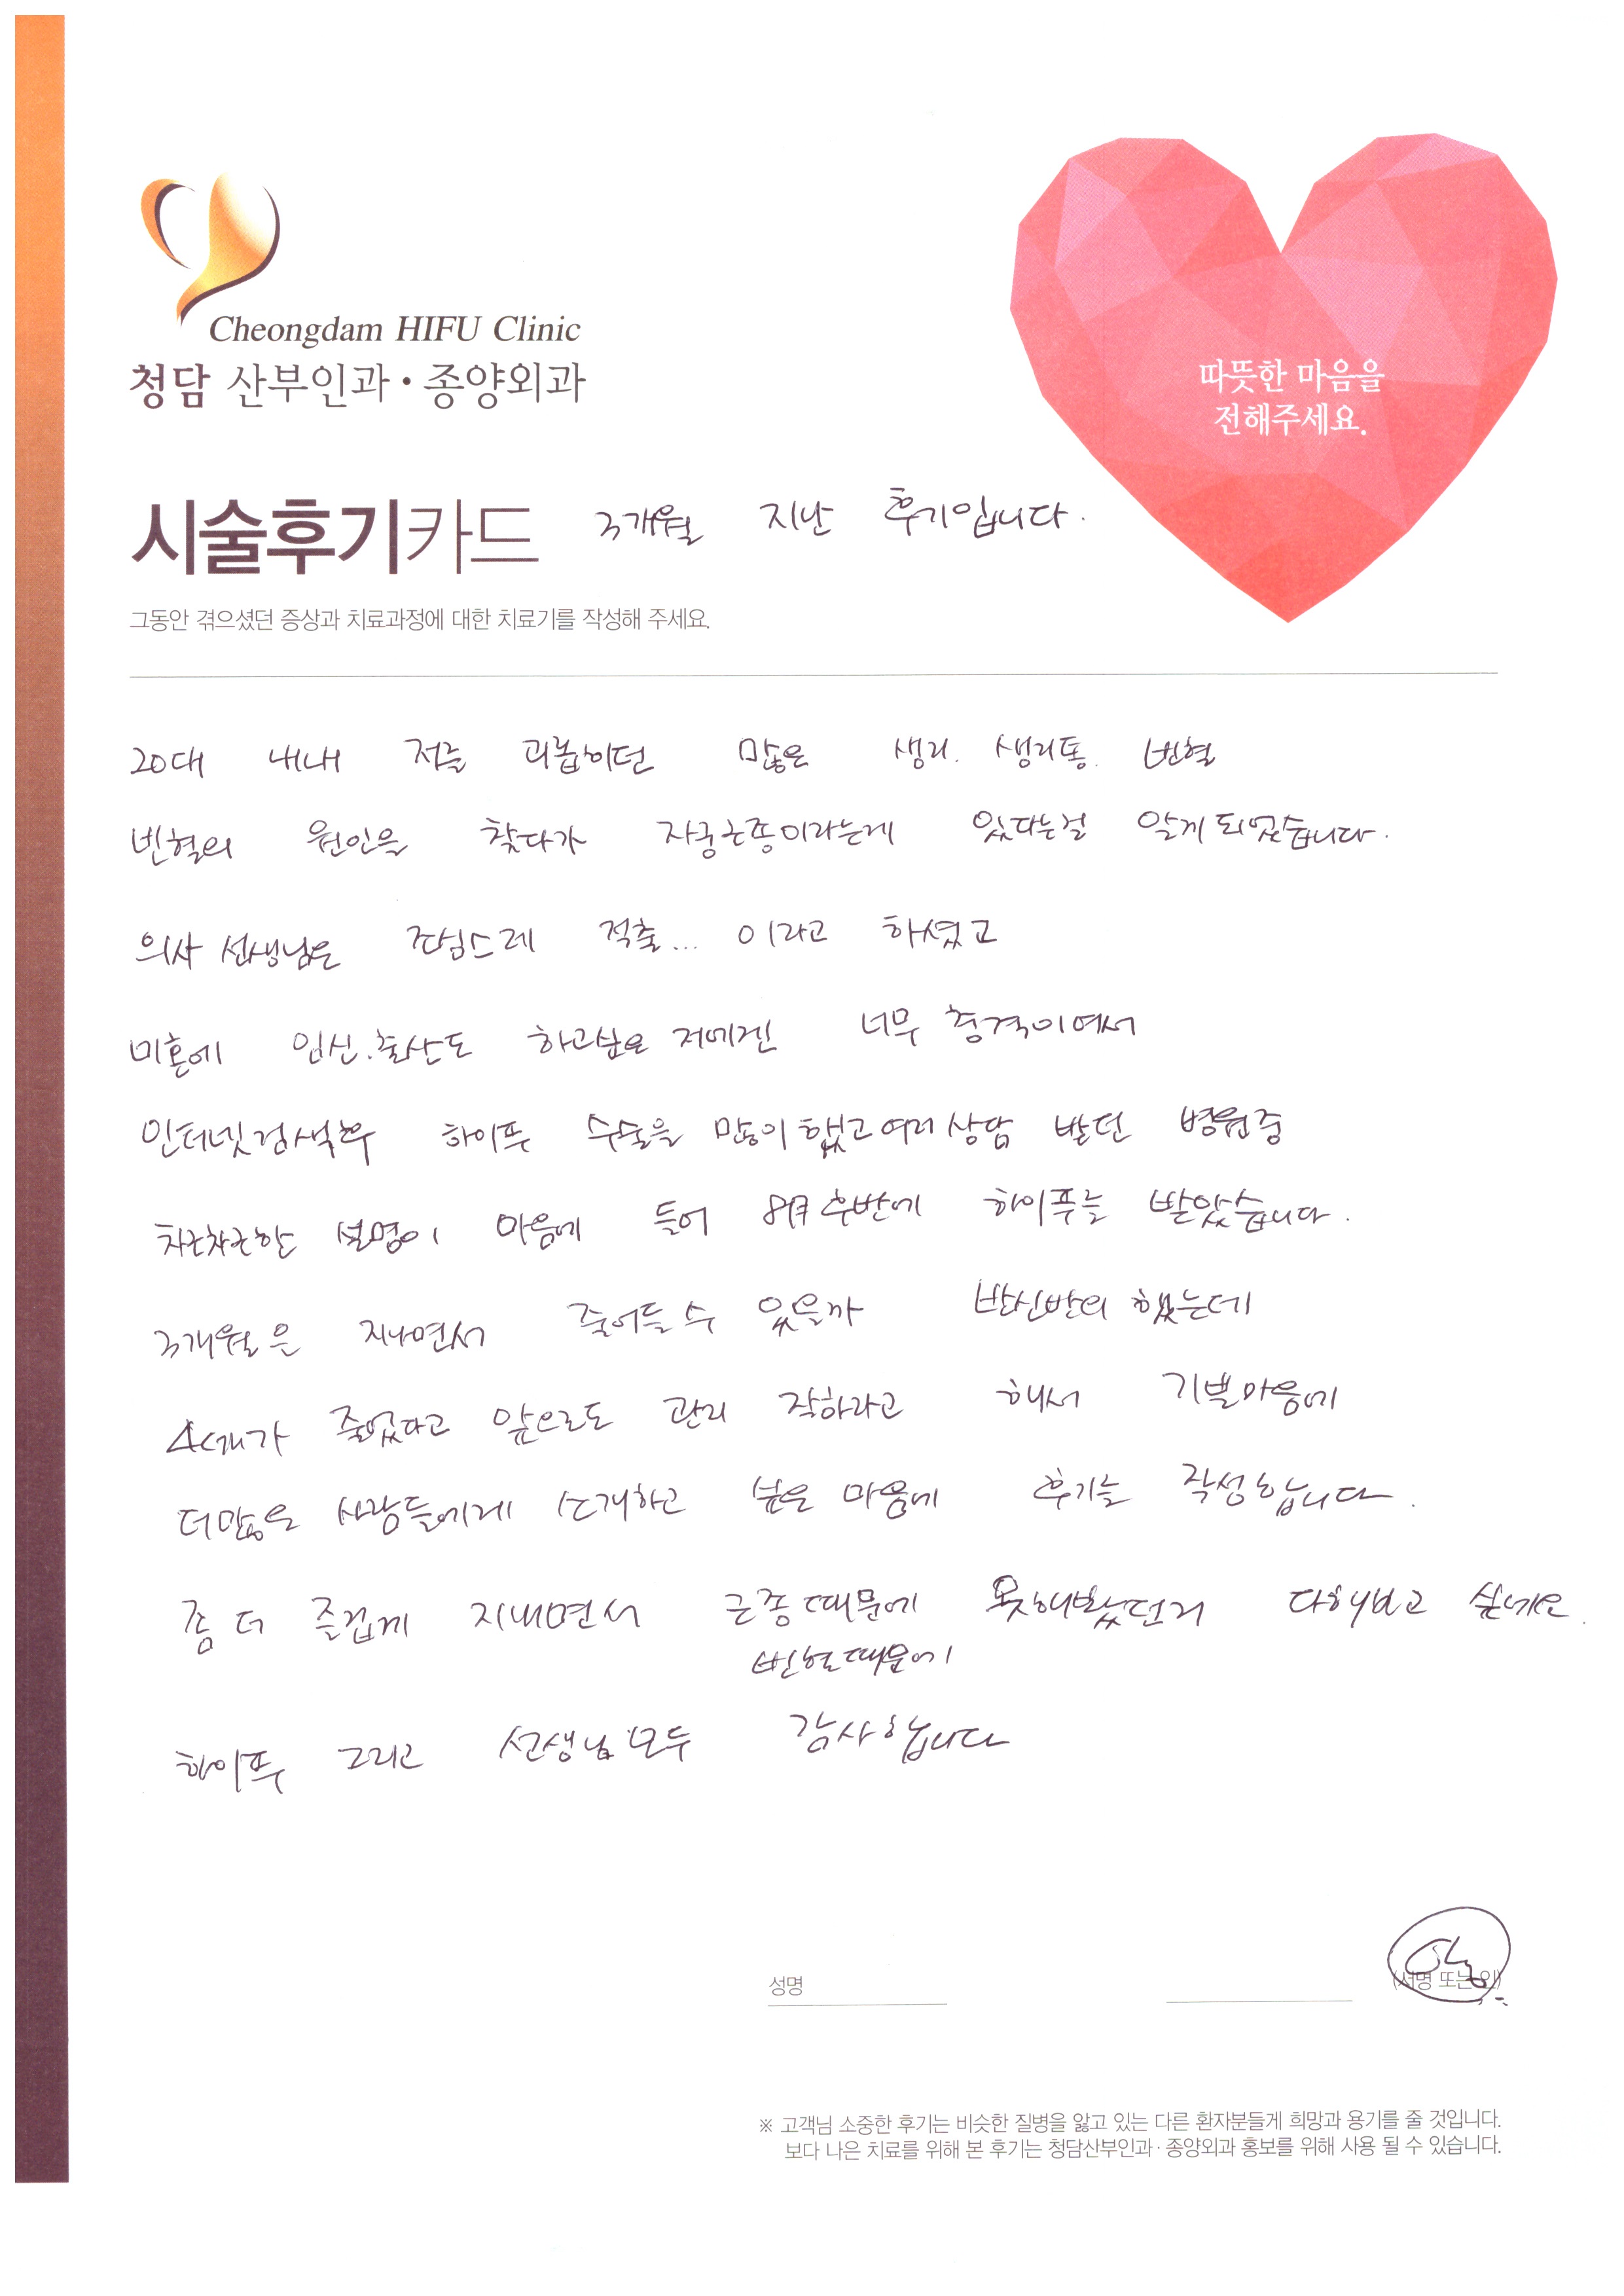 Cheongdam HIFU Clinic
청담 산부인과·종양외과
따뜻한 마음을
전해주세요.
시술후기카드 3개월 지난 후기입니다.
그동안 겪으셨던 증상과 치료과정에 대한 치료기를 작성해 주세요.
20대 내내 저를 괴롭히던 많은 생리. 생리통. 빈혈
빈혈의 원인을 찾다가 자궁근종이라는게 있다는걸 알게 되었습니다.
의사 선생님은 조심스레 적출... 이라고 하셨고
미혼에 임신.출산도 하고싶은 저에겐 너무 충격이여서
인터넷검색후 하이푸 수술을 많이 했고 여러 상담 받던 병원중
차근차근한 설명이 마음에 들어 8월 후반에 하이푸를 받았습니다.
3개월은 지나면서 줄어들 수 있을까 반신반의 했는데
4cm가 줄었다고 앞으로도 관리 잘하라고 해서 기쁜마음에
더많은 사람들에게 소개하고 싶은 마음에 후기를 작성합니다.
좀 더 즐겁게 지내면서 근종때문에 못해봤던거 다해보고 싶네요.
빈혈때문에
하이푸 그리고 선생님 모두 감사합니다
성명
(서명 또는 인)
※ 고객님 소중한 후기는 비슷한 질병을 앓고 있는 다른 환자분들게 희망과 용기를 줄 것입니다.
보다 나은 치료를 위해 본 후기는 청담산부인과·종양외과 홍보를 위해 사용 될 수 있습니다.